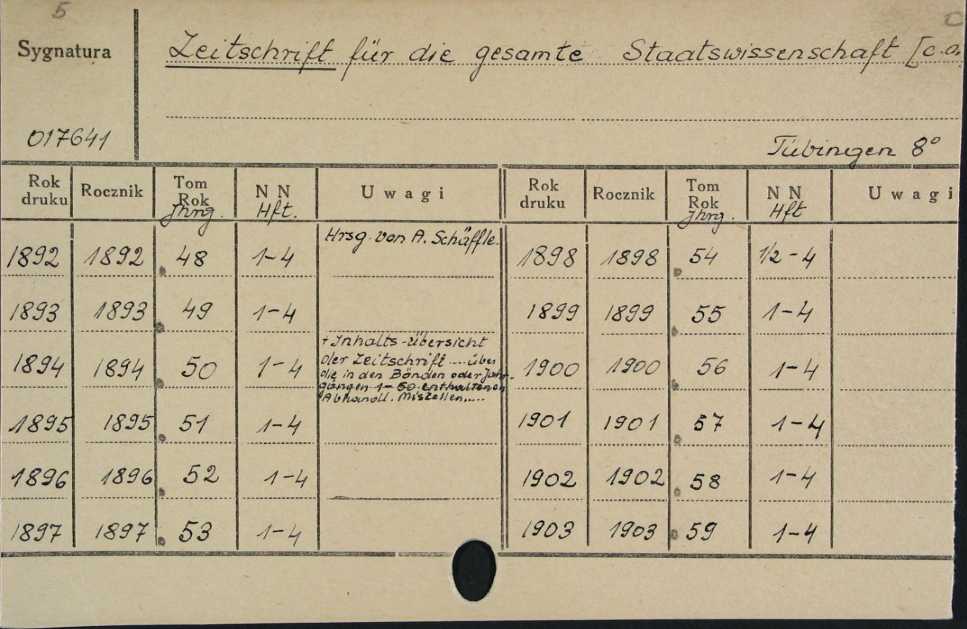 5
Sygnatura
Zeitschrift für die gesamte Staatswissenschaft [c.a.
017641
Tübingen 8°
Rok druku Rocznik Tom Rok Jhrg. NN Hft. Uwagi Rok druku Rocznik Tom Rok Jhrg. NN Hft Uwagi
1892 1892 48 1-4 Hrsg. von A. Schäffle. 1898 1898 54 1/2-4
1893 1893 49 1-4 1899 1899 55 1-4
1894 1894 50 1-4 + Inhalts-Übersicht
der Zeitschrift .... über
die in den Bänden oder Jahr-
gängen 1-50 enthaltenen
Abhandl. Miszellen,.... 1900 1900 56 1-4
1895 1895 51 1-4 1901 1901 57 1-4
1896 1896 52 1-4 1902 1902 58 1-4
1897 1897 53 1-4 1903 1903 59 1-4